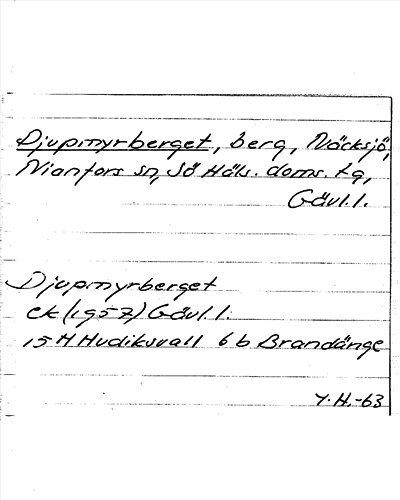 Djupmyrberget, berg, Näcksjö,
Nianfors sn, Sö Häls. doms. tg,
Gävl.l.
Djupmyrberget
ek (1957) Gävl.l.
15 H Hudiksvall 6 b Brandänge
Y.H.-63